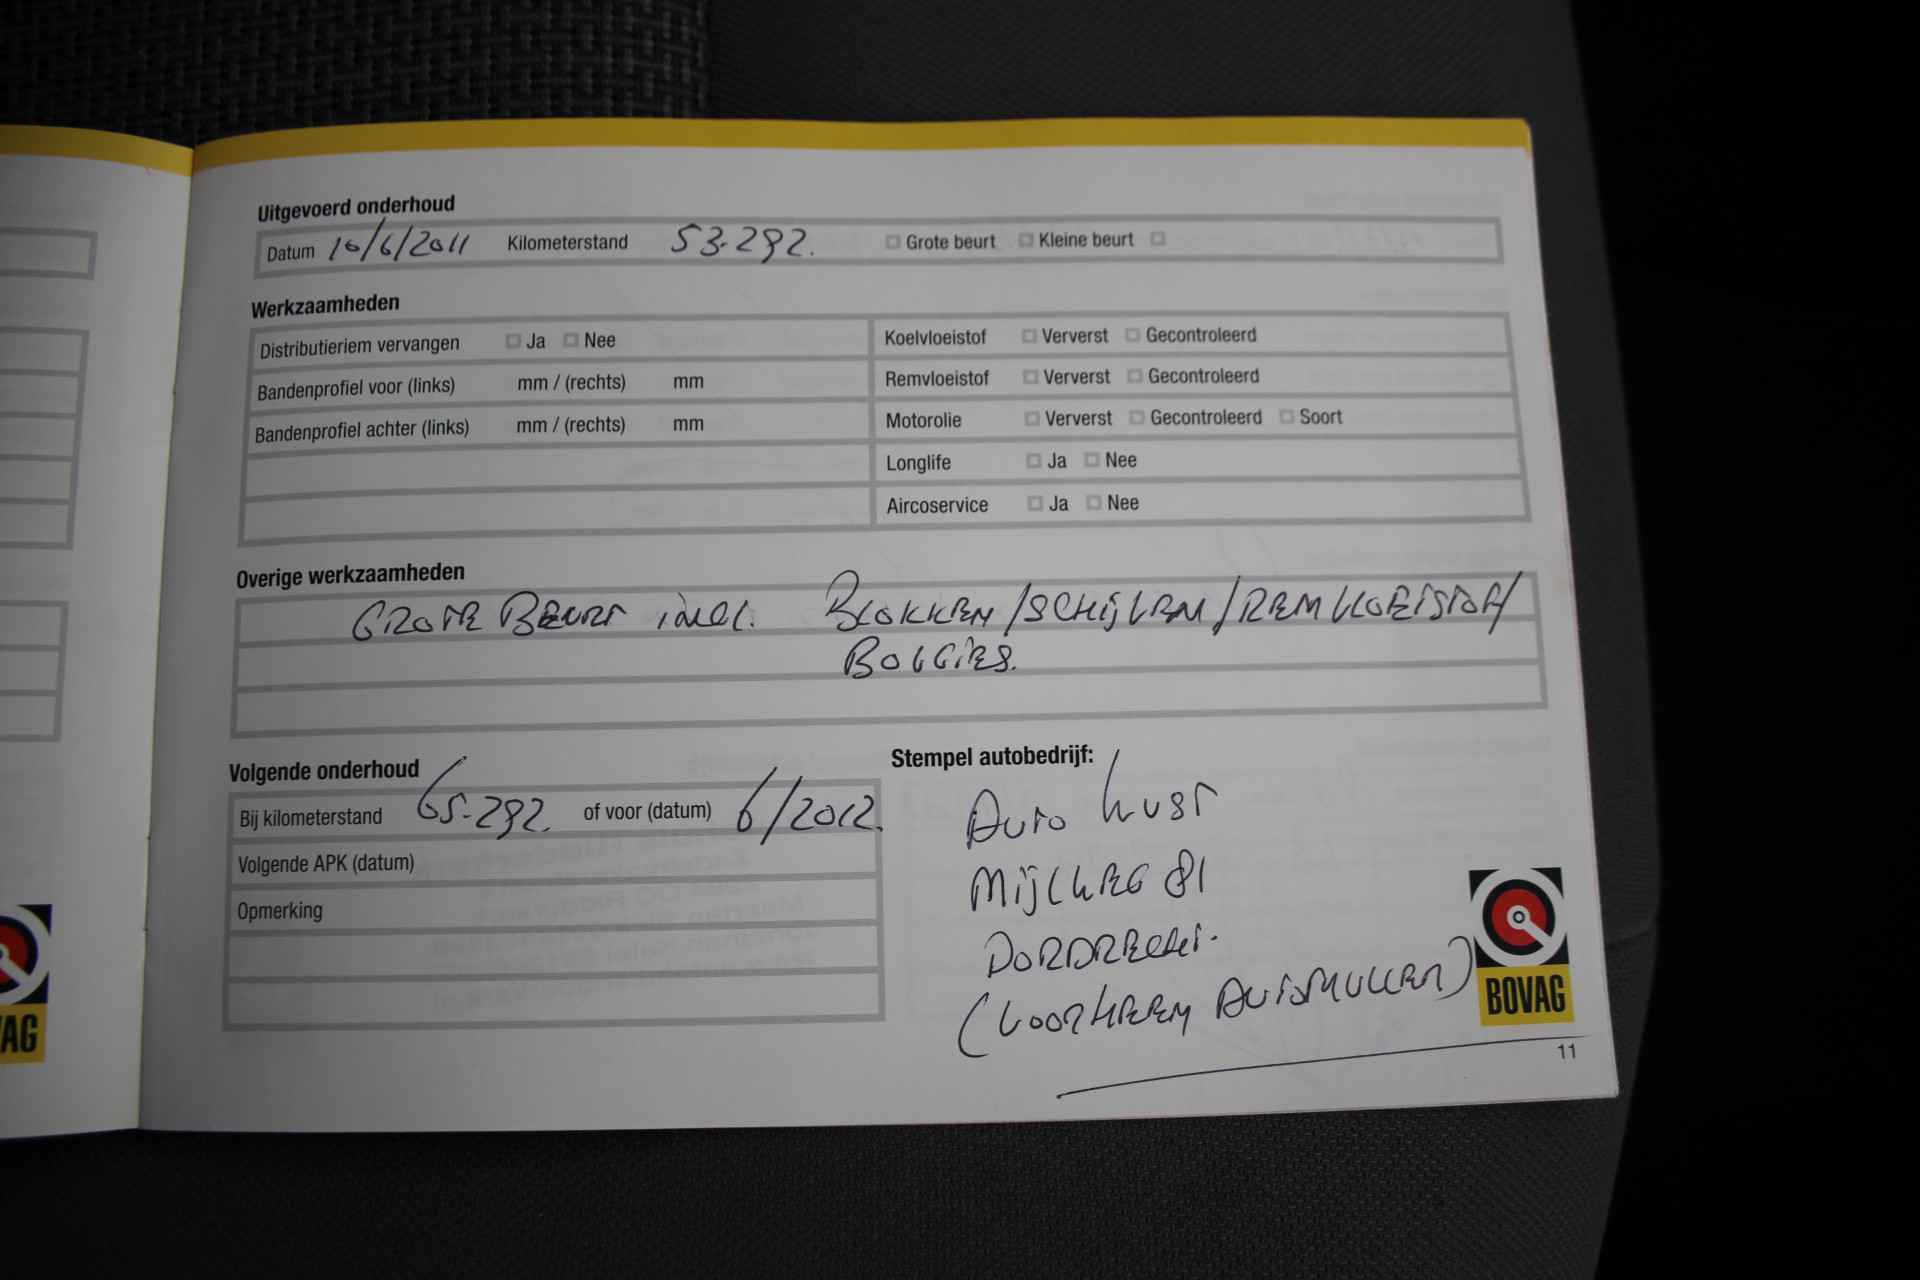 Uitgevoerd onderhoud
Datum 10/6/2011 Kilometerstand 53.292. Grote beurt Kleine beurt
Werkzaamheden
Distributieriem vervangen Ja Nee
Bandenprofiel voor (links) mm / (rechts) mm
Bandenprofiel achter (links) mm / (rechts) mm
Koelvloeistof Ververst Gecontroleerd
Remvloeistof Ververst Gecontroleerd
Motorolie Ververst Gecontroleerd Soort
Longlife Ja Nee
Aircoservice Ja Nee
Overige werkzaamheden
GROTE BEURT incl. BLOKKEN/SCHIJVEN/REMVLOEISTOF/
BOUGIES.
Volgende onderhoud
Bij kilometerstand 65.292. of voor (datum) 6/2012.
Volgende APK (datum)
Opmerking
Stempel autobedrijf:
AUTO VUST
MIJLWEG 81
DORDRECHT.
(VOORHEEN AUTOMULLER)
BOVAG
11
VAG